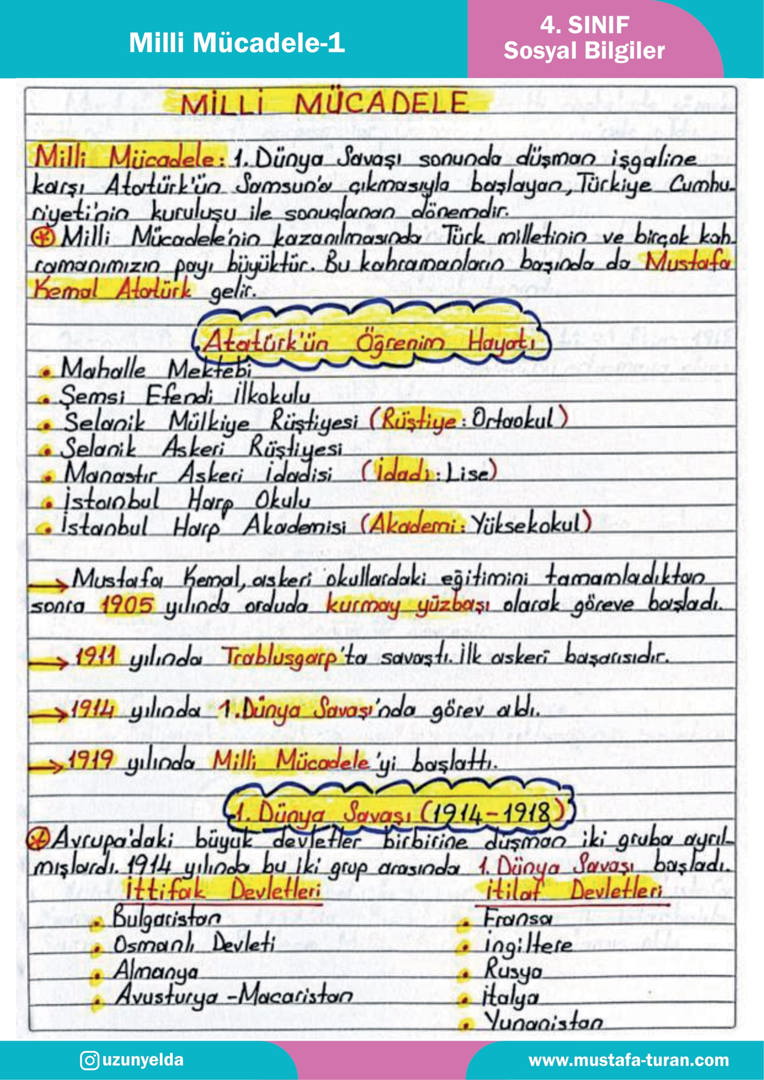 Milli Mücadele-1
4. SINIF
Sosyal Bilgiler
MİLLİ MÜCADELE
Milli Mücadele: 1. Dünya Savaşı sonunda düşman işgaline
karşı Atatürk'ün Samsun'a çıkmasıyla başlayan, Türkiye Cumhu-
riyeti'nin kuruluşu ile sonuçlanan dönemdir.
Milli Mücadele'nin kazanılmasında Türk milletinin ve birçok kah-
ramanımızın payı büyüktür. Bu kahramanların başında da Mustafa
Kemal Atatürk gelir.
Atatürk'ün Öğrenim Hayatı
• Mahalle Mektebi
• Şemsi Efendi İlkokulu
• Selanik Mülkiye Rüştiyesi (Rüştiye: Ortaokul)
• Selanik Askeri Rüştiyesi
• Manastır Askeri İdadisi (İdadi: Lise)
• İstanbul Harp Okulu
• İstanbul Harp Akademisi (Akademi: Yüksekokul)
→ Mustafa Kemal, askeri okullardaki eğitimini tamamladıktan
sonra 1905 yılında orduda kurmay yüzbaşı olarak göreve başladı.
→ 1911 yılında Trablusgarp'ta savaştı. İlk askeri başarısıdır.
→ 1914 yılında 1. Dünya Savaşı'nda görev aldı.
→ 1919 yılında Milli Mücadele'yi başlattı.
1. Dünya Savaşı (1914-1918)
Avrupa'daki büyük devletler birbirine düşman iki gruba ayrıl-
mışlardı. 1914 yılında bu iki grup arasında 1. Dünya Savaşı başladı.
İttifak Devletleri
• Bulgaristan
• Osmanlı Devleti
• Almanya
• Avusturya-Macaristan
İtilaf Devletleri
• Fransa
• İngiltere
• Rusya
• İtalya
• Yunanistan
uzunyelda
www.mustafa-turan.com